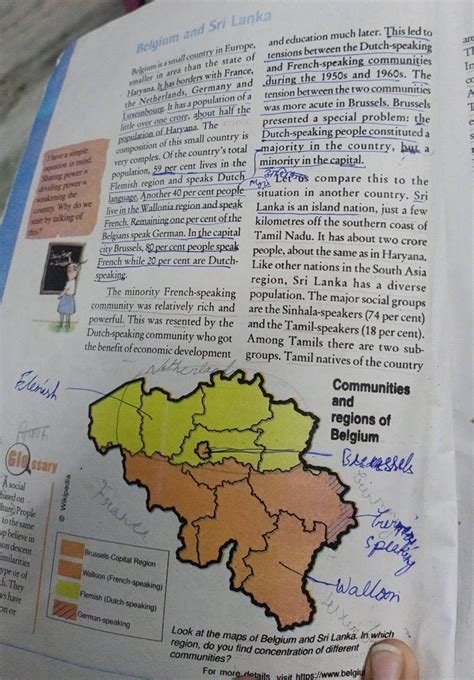 Belgium and Sri Lanka
Belgium is a small country in Europe,
smaller in area than the state of
Haryana. It has borders with France,
the Netherlands, Germany and
Luxembourg. It has a population of a
little over one crore, about half the
population of Haryana. The
composition of this small country is
very complex. Of the country's total
population, 59 per cent lives in the
Flemish region and speaks Dutch
language. Another 40 per cent people
live in the Wallonia region and speak
French. Remaining one per cent of the
Belgians speak German. In the capital
city Brussels, 80 per cent people speak
French while 20 per cent are Dutch-
speaking.
The minority French-speaking
community was relatively rich and
powerful. This was resented by the
Dutch-speaking community who got
the benefit of economic development
and education much later. This led to
tensions between the Dutch-speaking
and French-speaking communities
during the 1950s and 1960s. The
tension between the two communities
was more acute in Brussels. Brussels
presented a special problem: the
Dutch-speaking people constituted a
majority in the country, but a
minority in the capital.
Let us compare this to the
situation in another country. Sri
Lanka is an island nation, just a few
kilometres off the southern coast of
Tamil Nadu. It has about two crore
people, about the same as in Haryana.
Like other nations in the South Asia
region, Sri Lanka has a diverse
population. The major social groups
are the Sinhala-speakers (74 per cent)
and the Tamil-speakers (18 per cent).
Among Tamils there are two sub-
groups. Tamil natives of the country
I have a simple
equation in mind.
Sharing power =
dividing power =
weakening the
country. Why do we
start by talking of
this?
Netherland
Flemish
Communities
and
regions of
Belgium
Brussels
France
Germany
speaking
Walloon
Glossary
© Wikipedia
Brussels-Capital Region
Walloon (French-speaking)
Flemish (Dutch-speaking)
German-speaking
Look at the maps of Belgium and Sri Lanka. In which
region, do you find concentration of different
communities?
For more details, visit https://www.belgiu